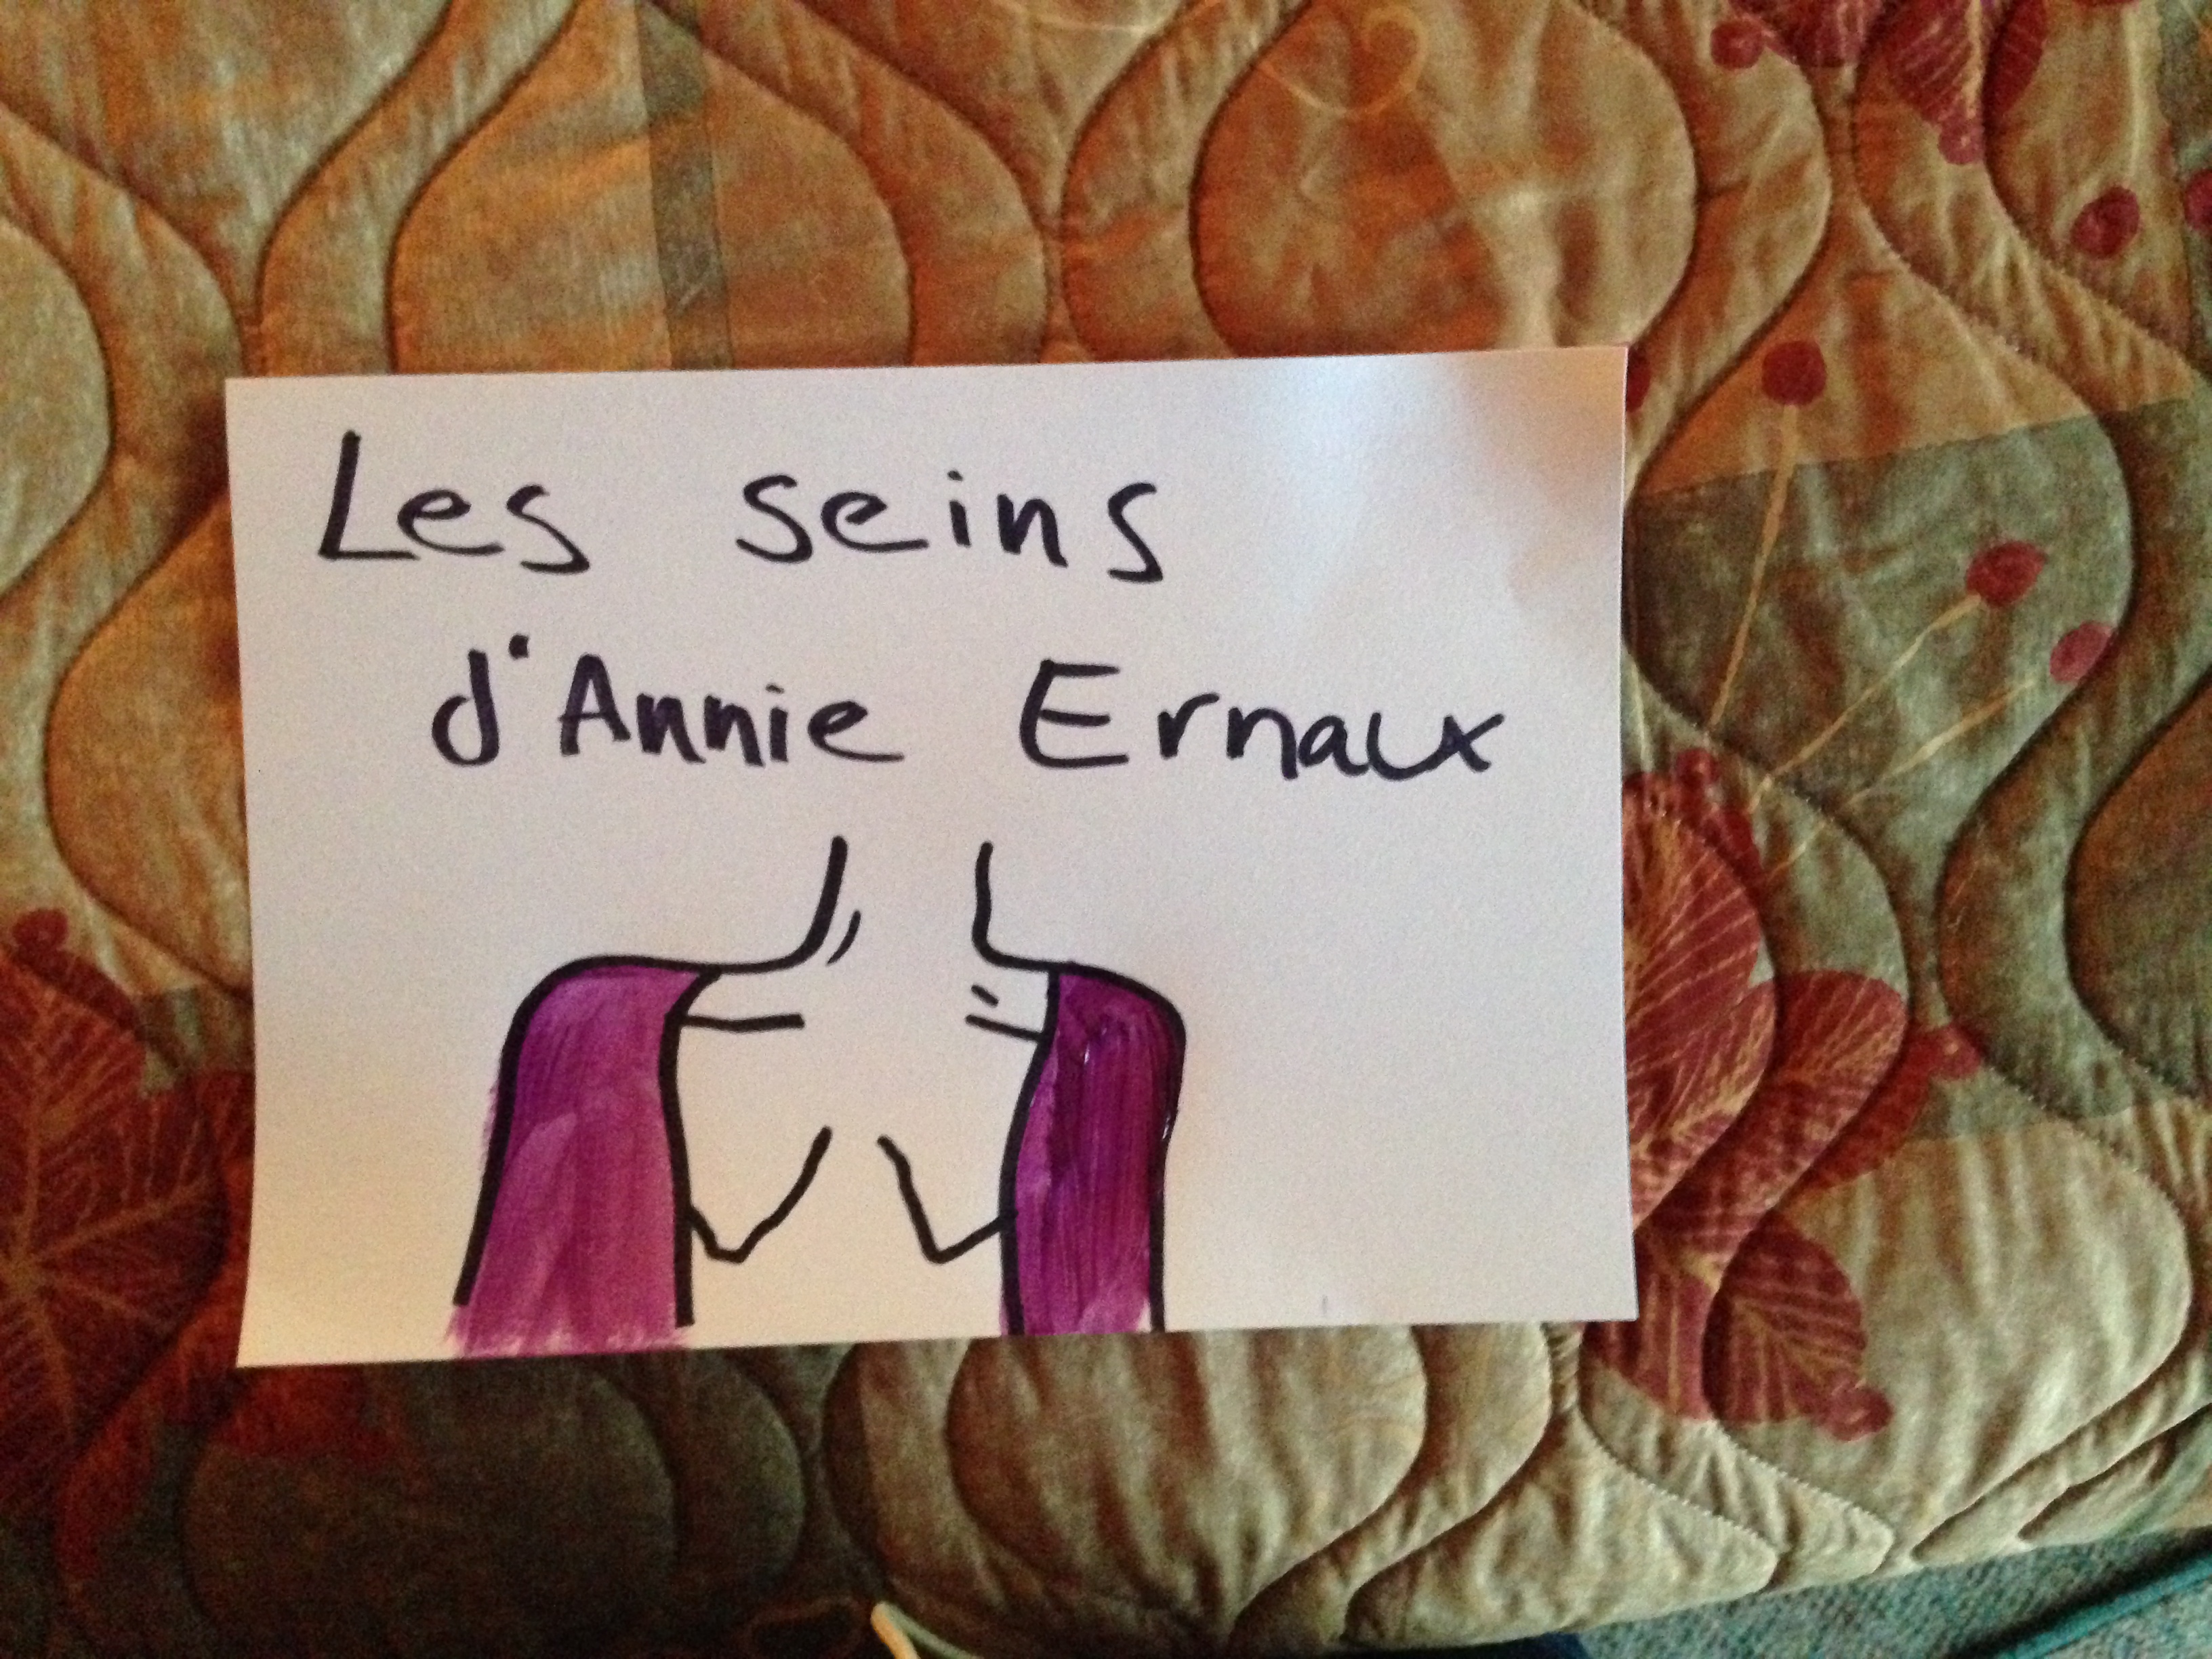 Les seins
d'Annie Ernaux